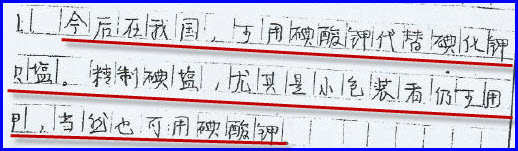 1. 今后在我国,可用碘酸钾代替碘化钾
盐。精制碘盐,尤其是小包装者仍可用
,当然也可用碘酸钾